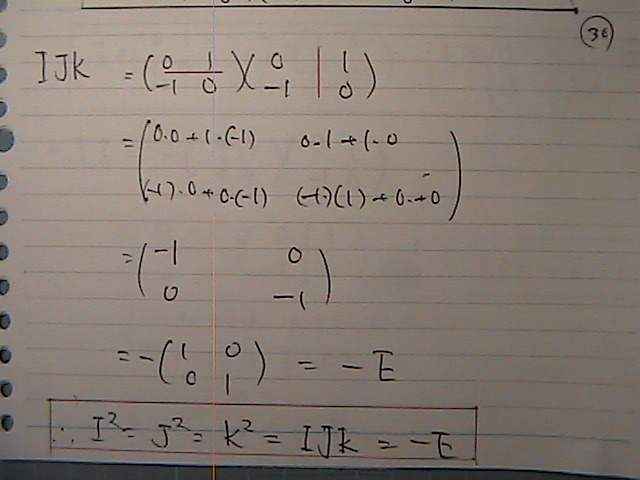 36
IJK = ( 0 1 -1 0 )( 0 1 -1 0 )
= ( 0.0+1.(-1) 0.1+1.0
(-1).0+0.(-1) (-1)(1)+0.+0 )
= ( -1 0
0 -1 )
= -( 1 0 0 1 ) = -E
∴ I² = J² = K² = IJK = -E